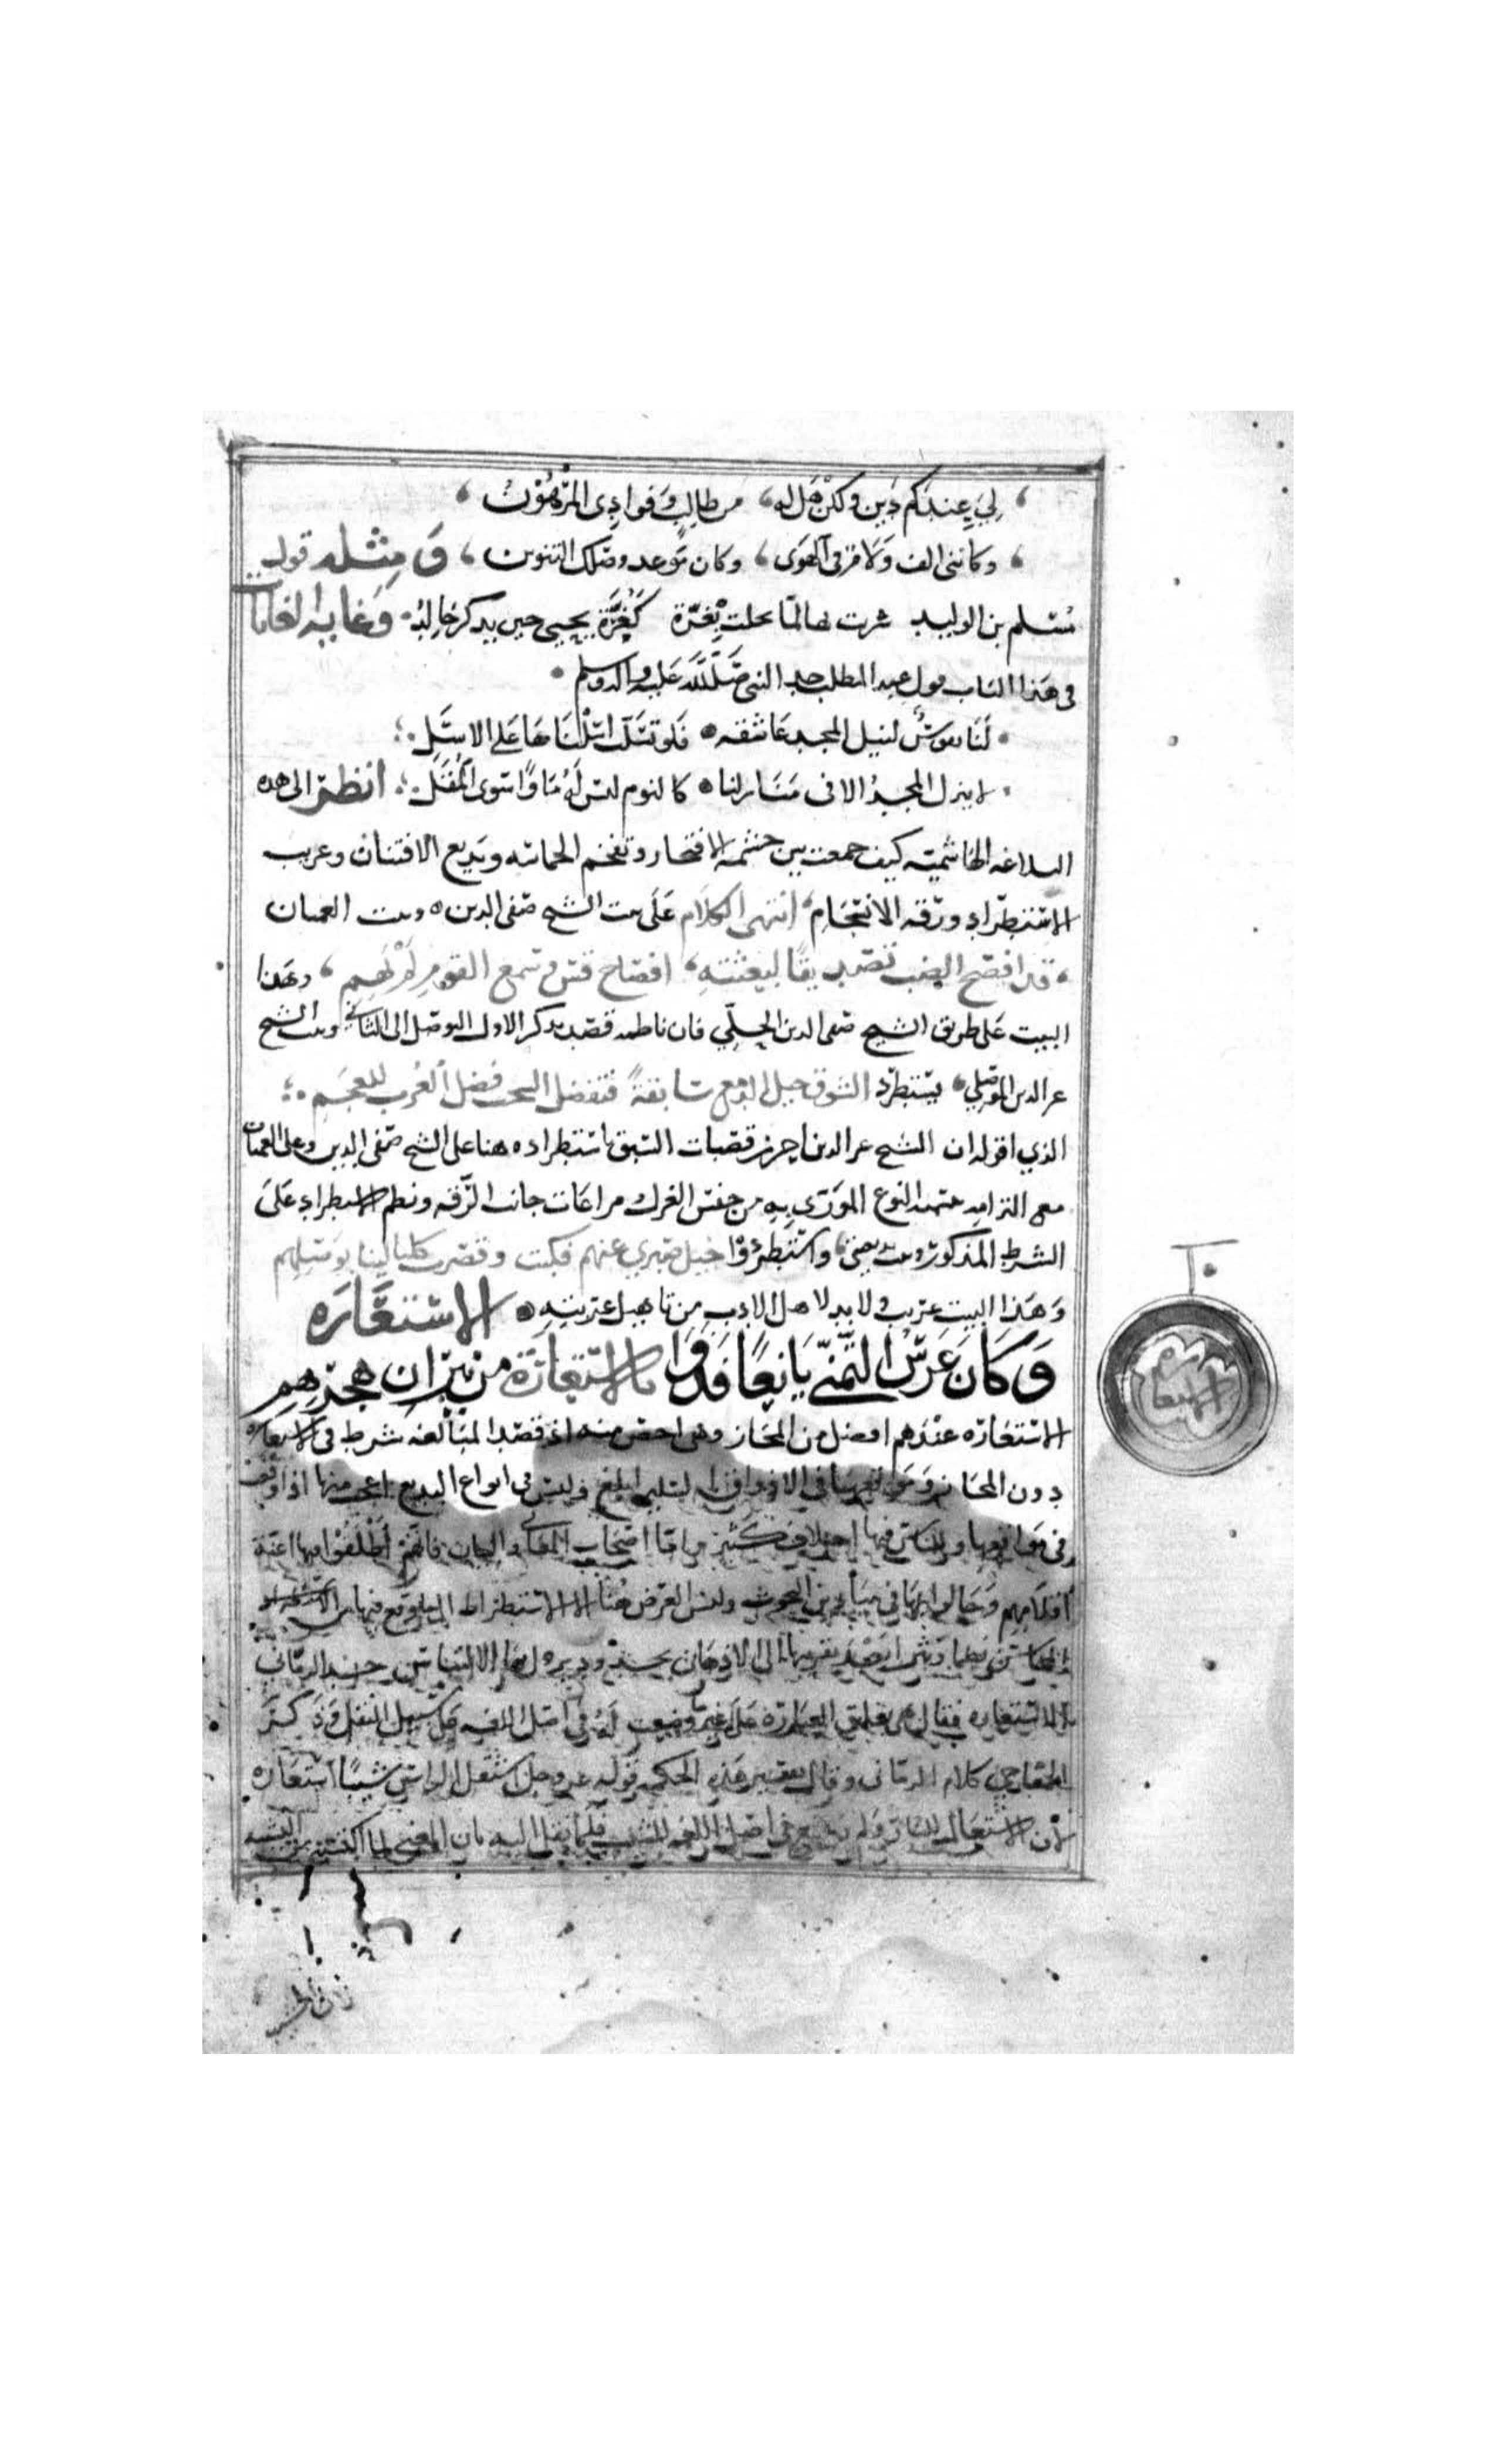 لِيَ عِندَكم دَين ولكنْ هَل له، من طالبٍ وَفوادِى المرْهُوْنُ،
، وكاننى الف وَلامْ فى الهَوَى، وكان مَوعد وصلك التنوين، وَمِثْله قول
مُسلم بن الوليد شرت لها لمّا بحلت بِغُرّة كَغُرَّة يحيى حين يذكر خالِدُ. وَغايه الغايات
فى هَذا الباب قول عبد المطلب جد النبى صَلّى اللّه عَليه واله وسلم.
لَنَا نفوسٌ لنيل المجد عَاشقه. فَلو تسَلّت اسَلْنَاهَا عَلى الاسَلِ.
لا ينزل المجدُ الا فى مَنَازلنا. كا لنوم ليس لَهُ مَاوًا سوى المُقَلِ. انظر الى هذه
البلاغه الهَاشميّه كيف جمعت بين حشمة الافتخار وتفخم الحماسه وبَديع الافتنان وغريب
الاسْتطرادِ ورقه الانسجَامِ، انتهى الكلَام عَلَى بيت الشيح صفى الدين. وبيت العميان
، قد افصَح الضب تصديقًا لبعثتهِ، افصاح قس وسَمع القومِ لم يَهم، وهَذا
البيت عَلى طريق الشيح صفى الدين الحِلّي فان ناظمه قصَد بذكر الاول التوصّل الى الثانى وبيت الشيح
عز الدين الموصلي، يستطرد الشوق خيل الدمع سَابقةً فتفضل السحب فَضل العُرب للعجَم.
الذي اقوله ان الشيح عز الدين احرز قصَبات السّبق باستطراده هنا على الشيح صفى الدين وعلى العميان
مع التزامه بتسميه النوع المورّى بِهِ من جنس الغزل ومراعات جانب الرقه ونظم الاستطرادِ عَلىَ
الشرط المذكور وبيت بديعيتى، واسْتطردُوْا خيل صَبرى عنهم فكبت وقصّرت كليالينا بوَصلِهم
وَهَذا البيت غريب ولا بد لاهل الادب من تاهيل غربته. الاسْتعَارَه
وَكَانَ غَرسُ التَّمنّي يَانِعًا فَذَوَا بالاسْتعَارَة من نيرَان هَجرهِم
الاسْتعَاره عنْدَهم افضل من المجَاز وهى اخص منه اذ قصْد المبَالغه شرط فى الاستعاره
دون المجَاز وَمَوقعهَا فى الاذواق السليمه ابلغ وليس فى انواع البديع اعجب منها اذا وقعت
فى مَواقعها وللناس فيها اختلاف كثير وامّا اصْحاب المعَانى والبيان فانّهم أطْلَقُوا فيها اعنة
اقلَامهم وَجَالوا بها فى ميادين البحوث وليس الغرض هُنَا الا الاستطراد الى ما وقع فيها من الاستعارات
المحاسن نظمًا ونثرًا بَعْدَ تقريبها الى الاذهان بحدٍ يزول به الالتباس حد الرمّانى
الاسْتعاره فقال هى تعليق العبارة عَلى غير مَا وضعت لَهُ فى اصْل اللغه عَلى سَبيل النقل وَذَكرَ
الخفاجى كلام الرمّانى وقال تفسير هَذه الجملة قوله عز وجل اشتعل الراسُ شيبًا استعَاره
لان الاشتعَال للنار وَلم يُوضع فى اصْل اللغه للشيب فلمّا نقل اليه بان المعنى لما اكتسبه من التشبيه
الاستعاره